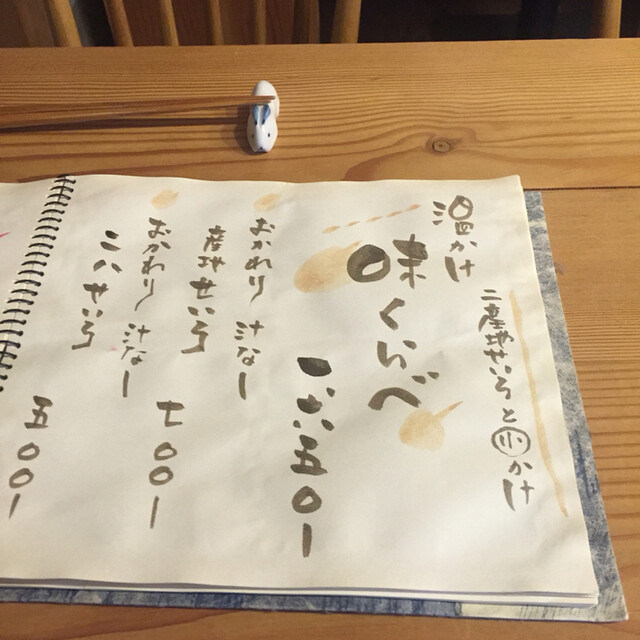 温かけ
二産地せいろと㊙かけ
味くらべ
一、六五〇ー
おかわり 汁なし
産地せいろ
七〇〇ー
おかわり 汁なし
二八せいろ
五〇〇ー